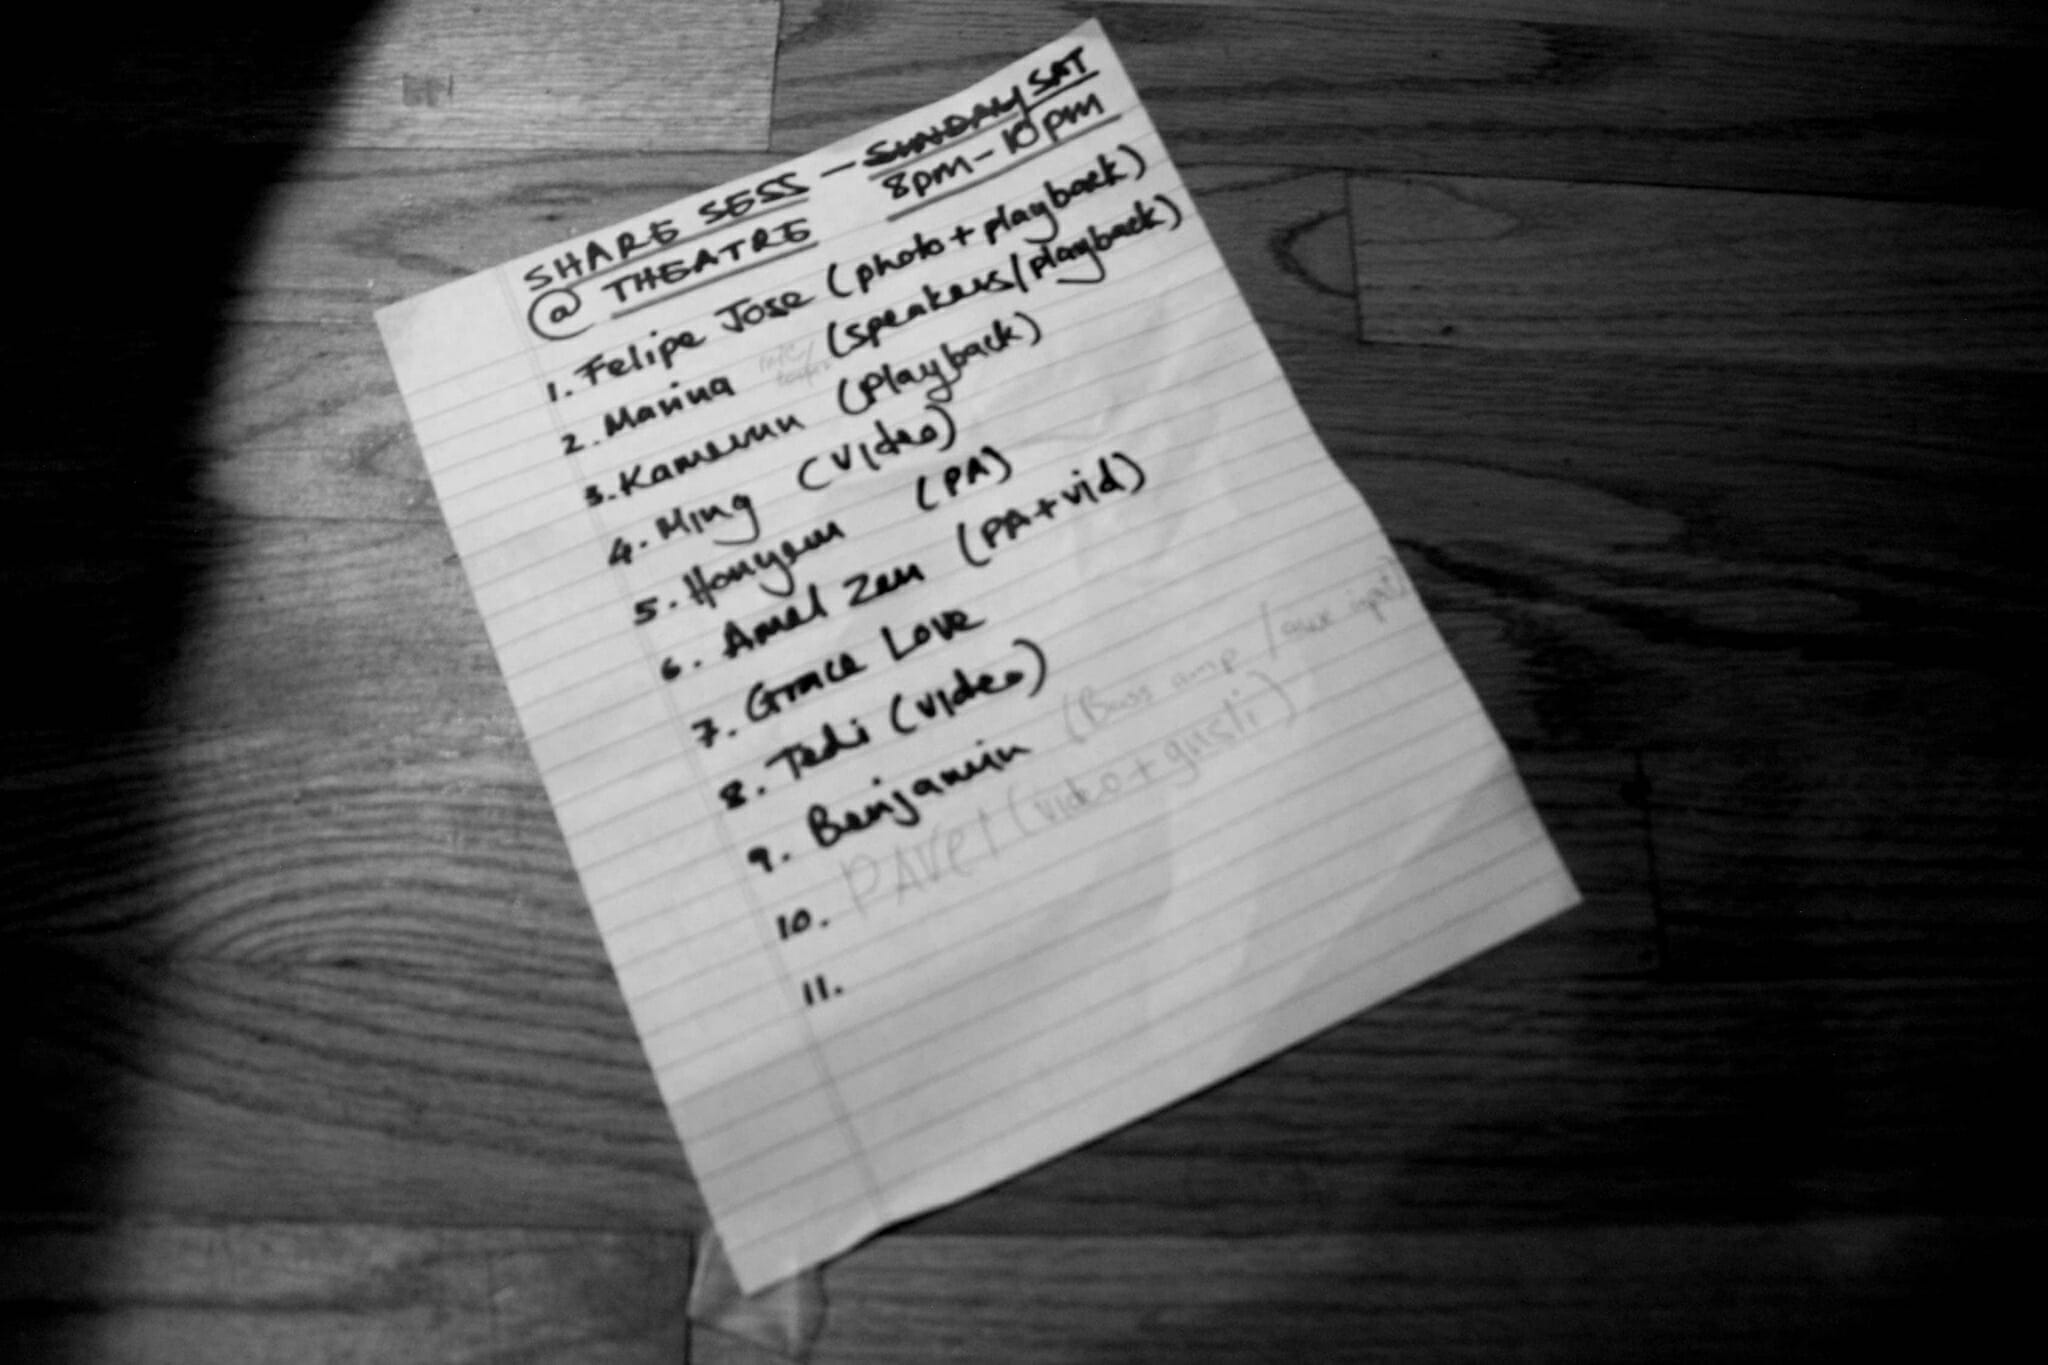 SHARE SESS — SUNDAY SAT
@ THEATRE 8pm – 10pm
1. Felipe Jose (photo + playback)
2. Marina (speakers/playback)
3. Kamerun (Playback)
4. Ming (Video)
5. Honyem (PA)
6. Amel Zen (PA + vid)
7. Grace Love
8. Tedi (video)
9. Benjamin (Bass amp / aux input)
10. PAvel (video +
11.